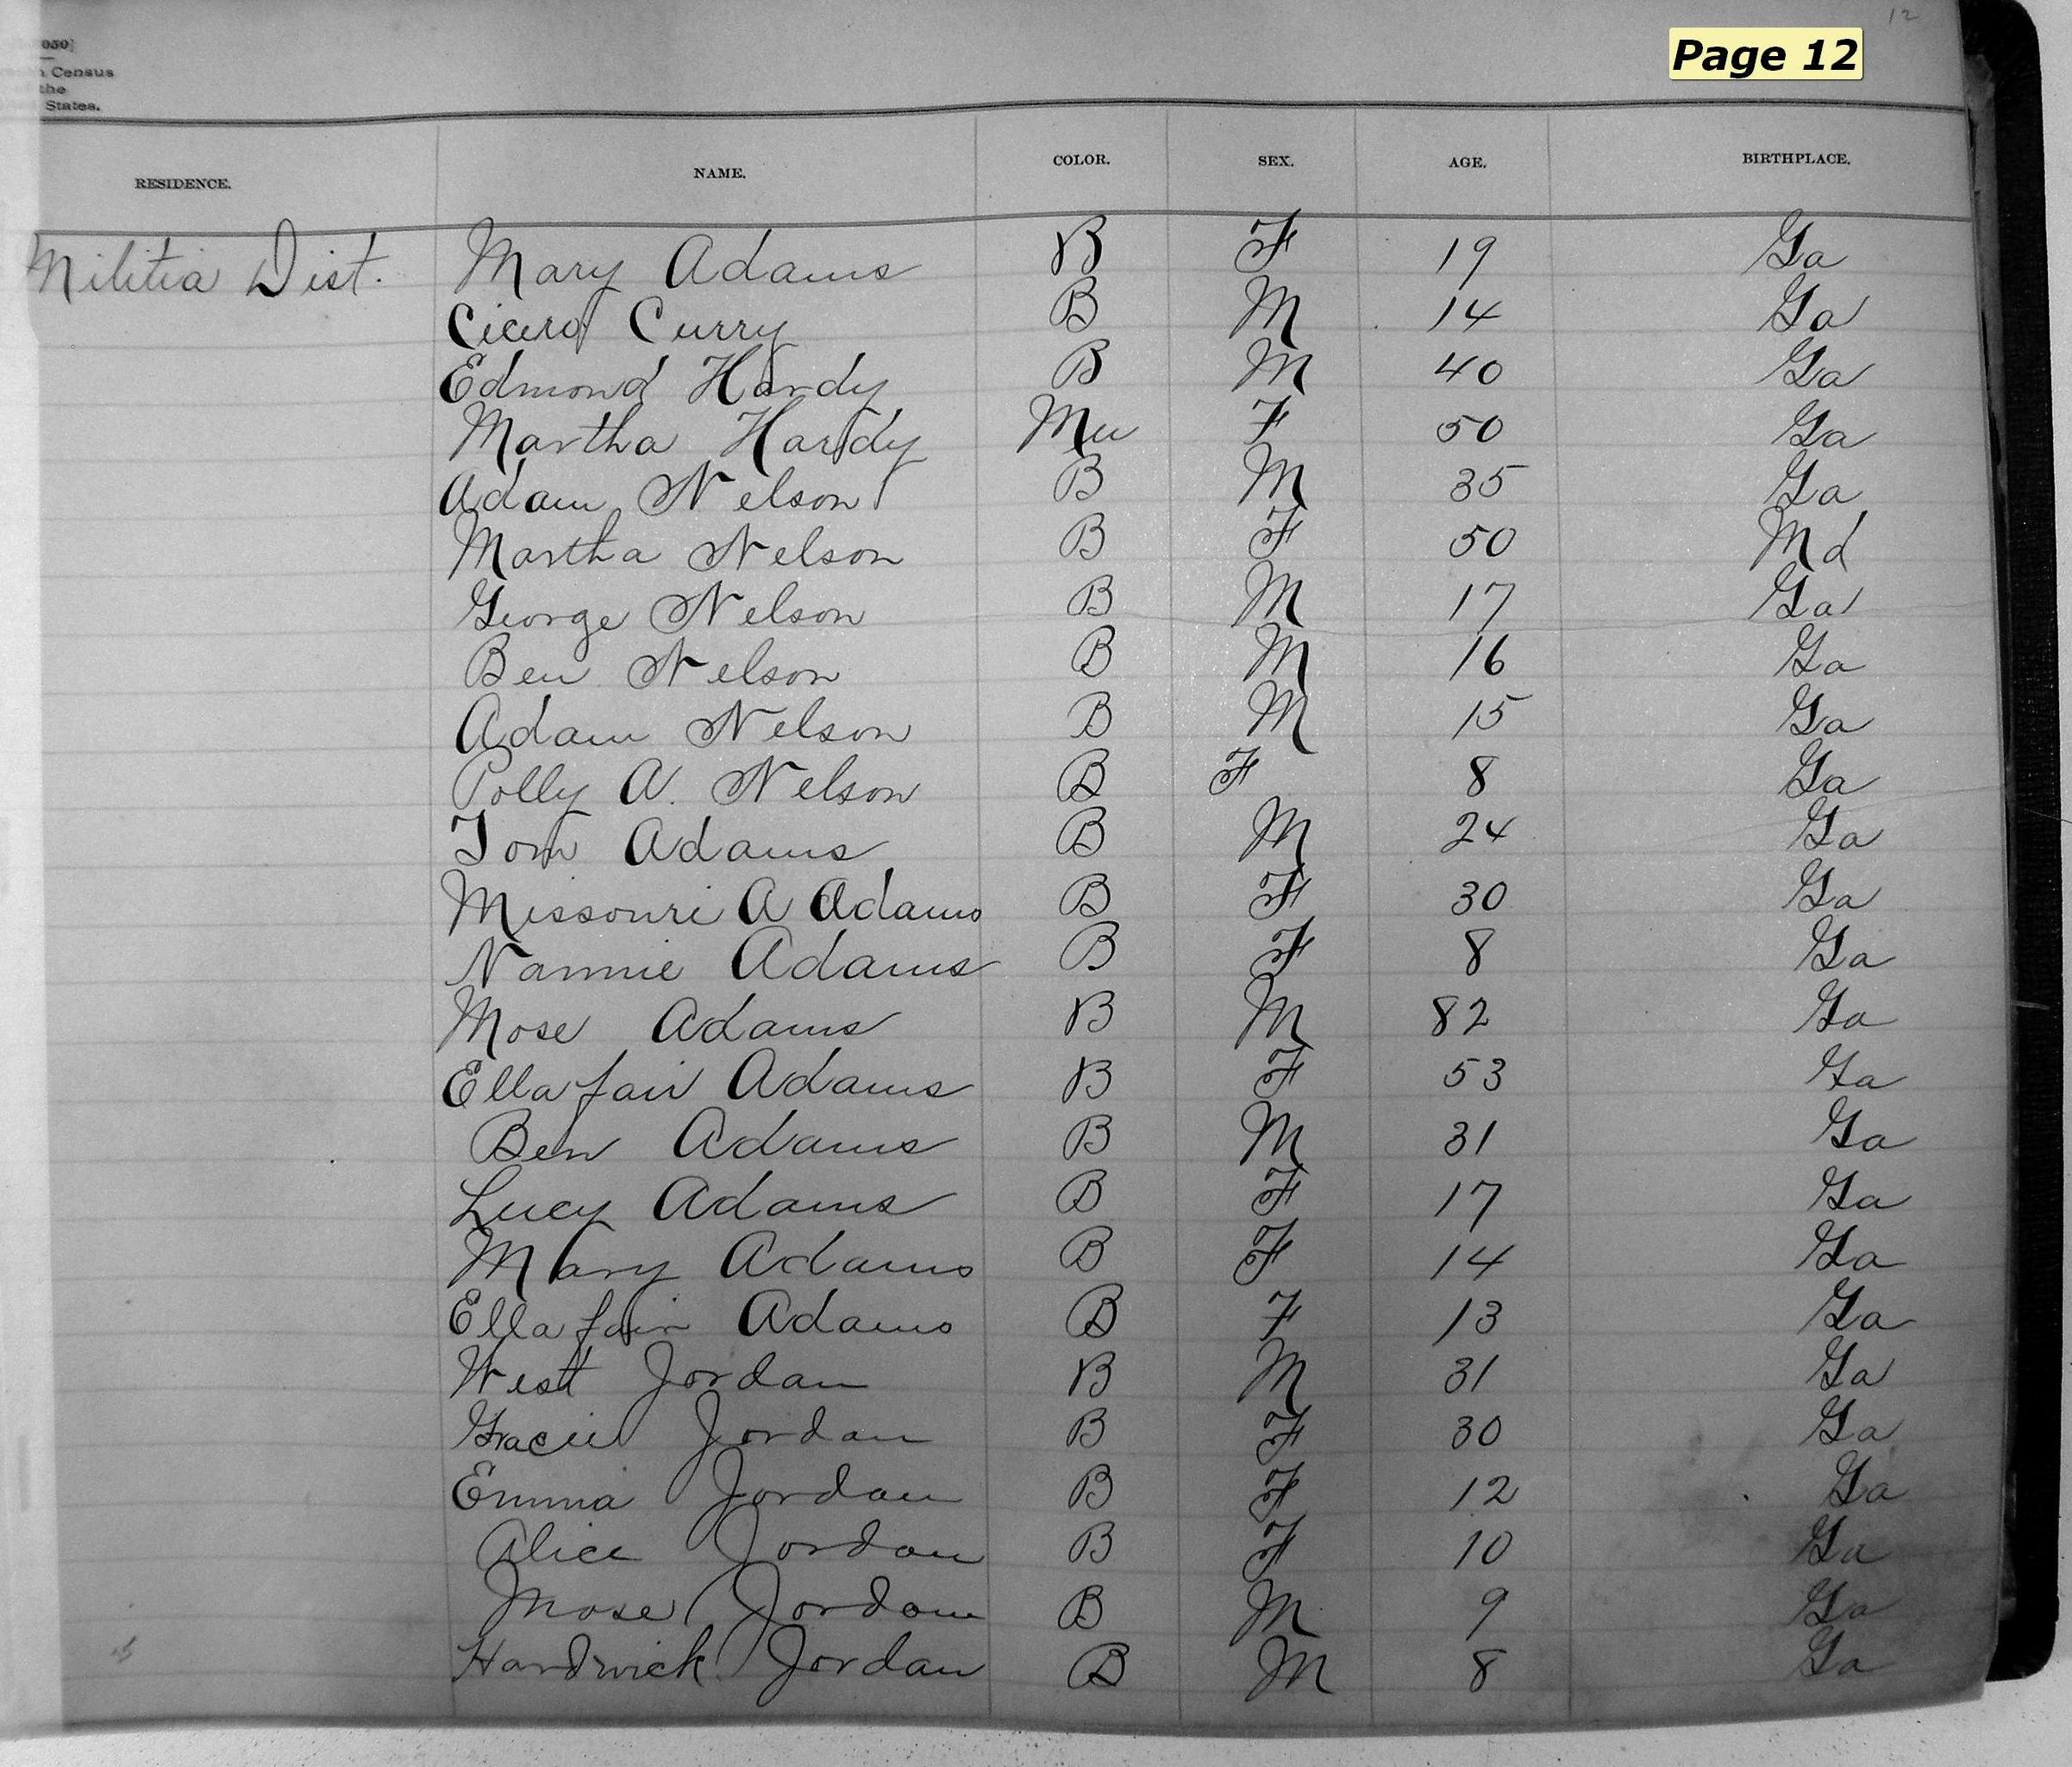 12
Page 12
050]
Census
the
States.
RESIDENCE. NAME. COLOR. SEX. AGE. BIRTHPLACE.
Militia Dist. Mary Adams B F 19 Ga
Cicero Curry B M 14 Ga
Edmond Hardy B M 40 Ga
Martha Hardy Mu F 50 Ga
Adam Nelson B M 35 Ga
Martha Nelson B F 50 Md
George Nelson B M 17 Ga
Ben Nelson B M 16 Ga
Adam Nelson B M 15 Ga
Polly A. Nelson B F 8 Ga
Tom Adams B M 24 Ga
Missouri A Adams B F 30 Ga
Nannie Adams B F 8 Ga
Mose Adams B M 82 Ga
Ellafair Adams B F 53 Ga
Ben Adams B M 31 Ga
Lucy Adams B F 17 Ga
Mary Adams B F 14 Ga
Ellafair Adams B F 13 Ga
West Jordan B M 31 Ga
Gracie Jordan B F 30 Ga
Emma Jordan B F 12 Ga
Alice Jordan B F 10 Ga
Mose Jordan B M 9 Ga
Hardwick Jordan B M 8 Ga